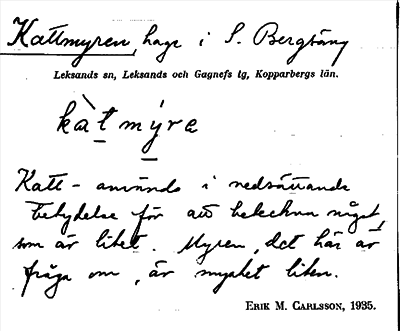 Kattmyren, hage i S. Bergsäng
Leksands sn, Leksands och Gagnefs tg, Kopparbergs län.
kàt mýra
Katt- används i nedsättande
betydelse för att beteckna något,
som är litet. Myren, det här är
fråga om, är mycket liten.
ERIK M. CARLSSON, 1935.